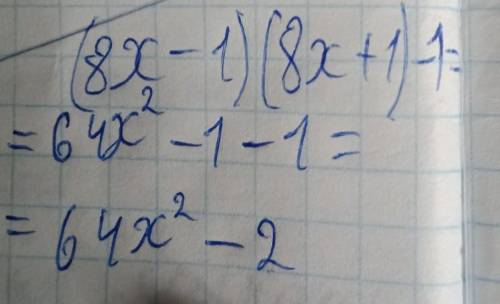 (8x - 1)(8x + 1) - 1 =
= 64x² - 1 - 1 =
= 64x² - 2